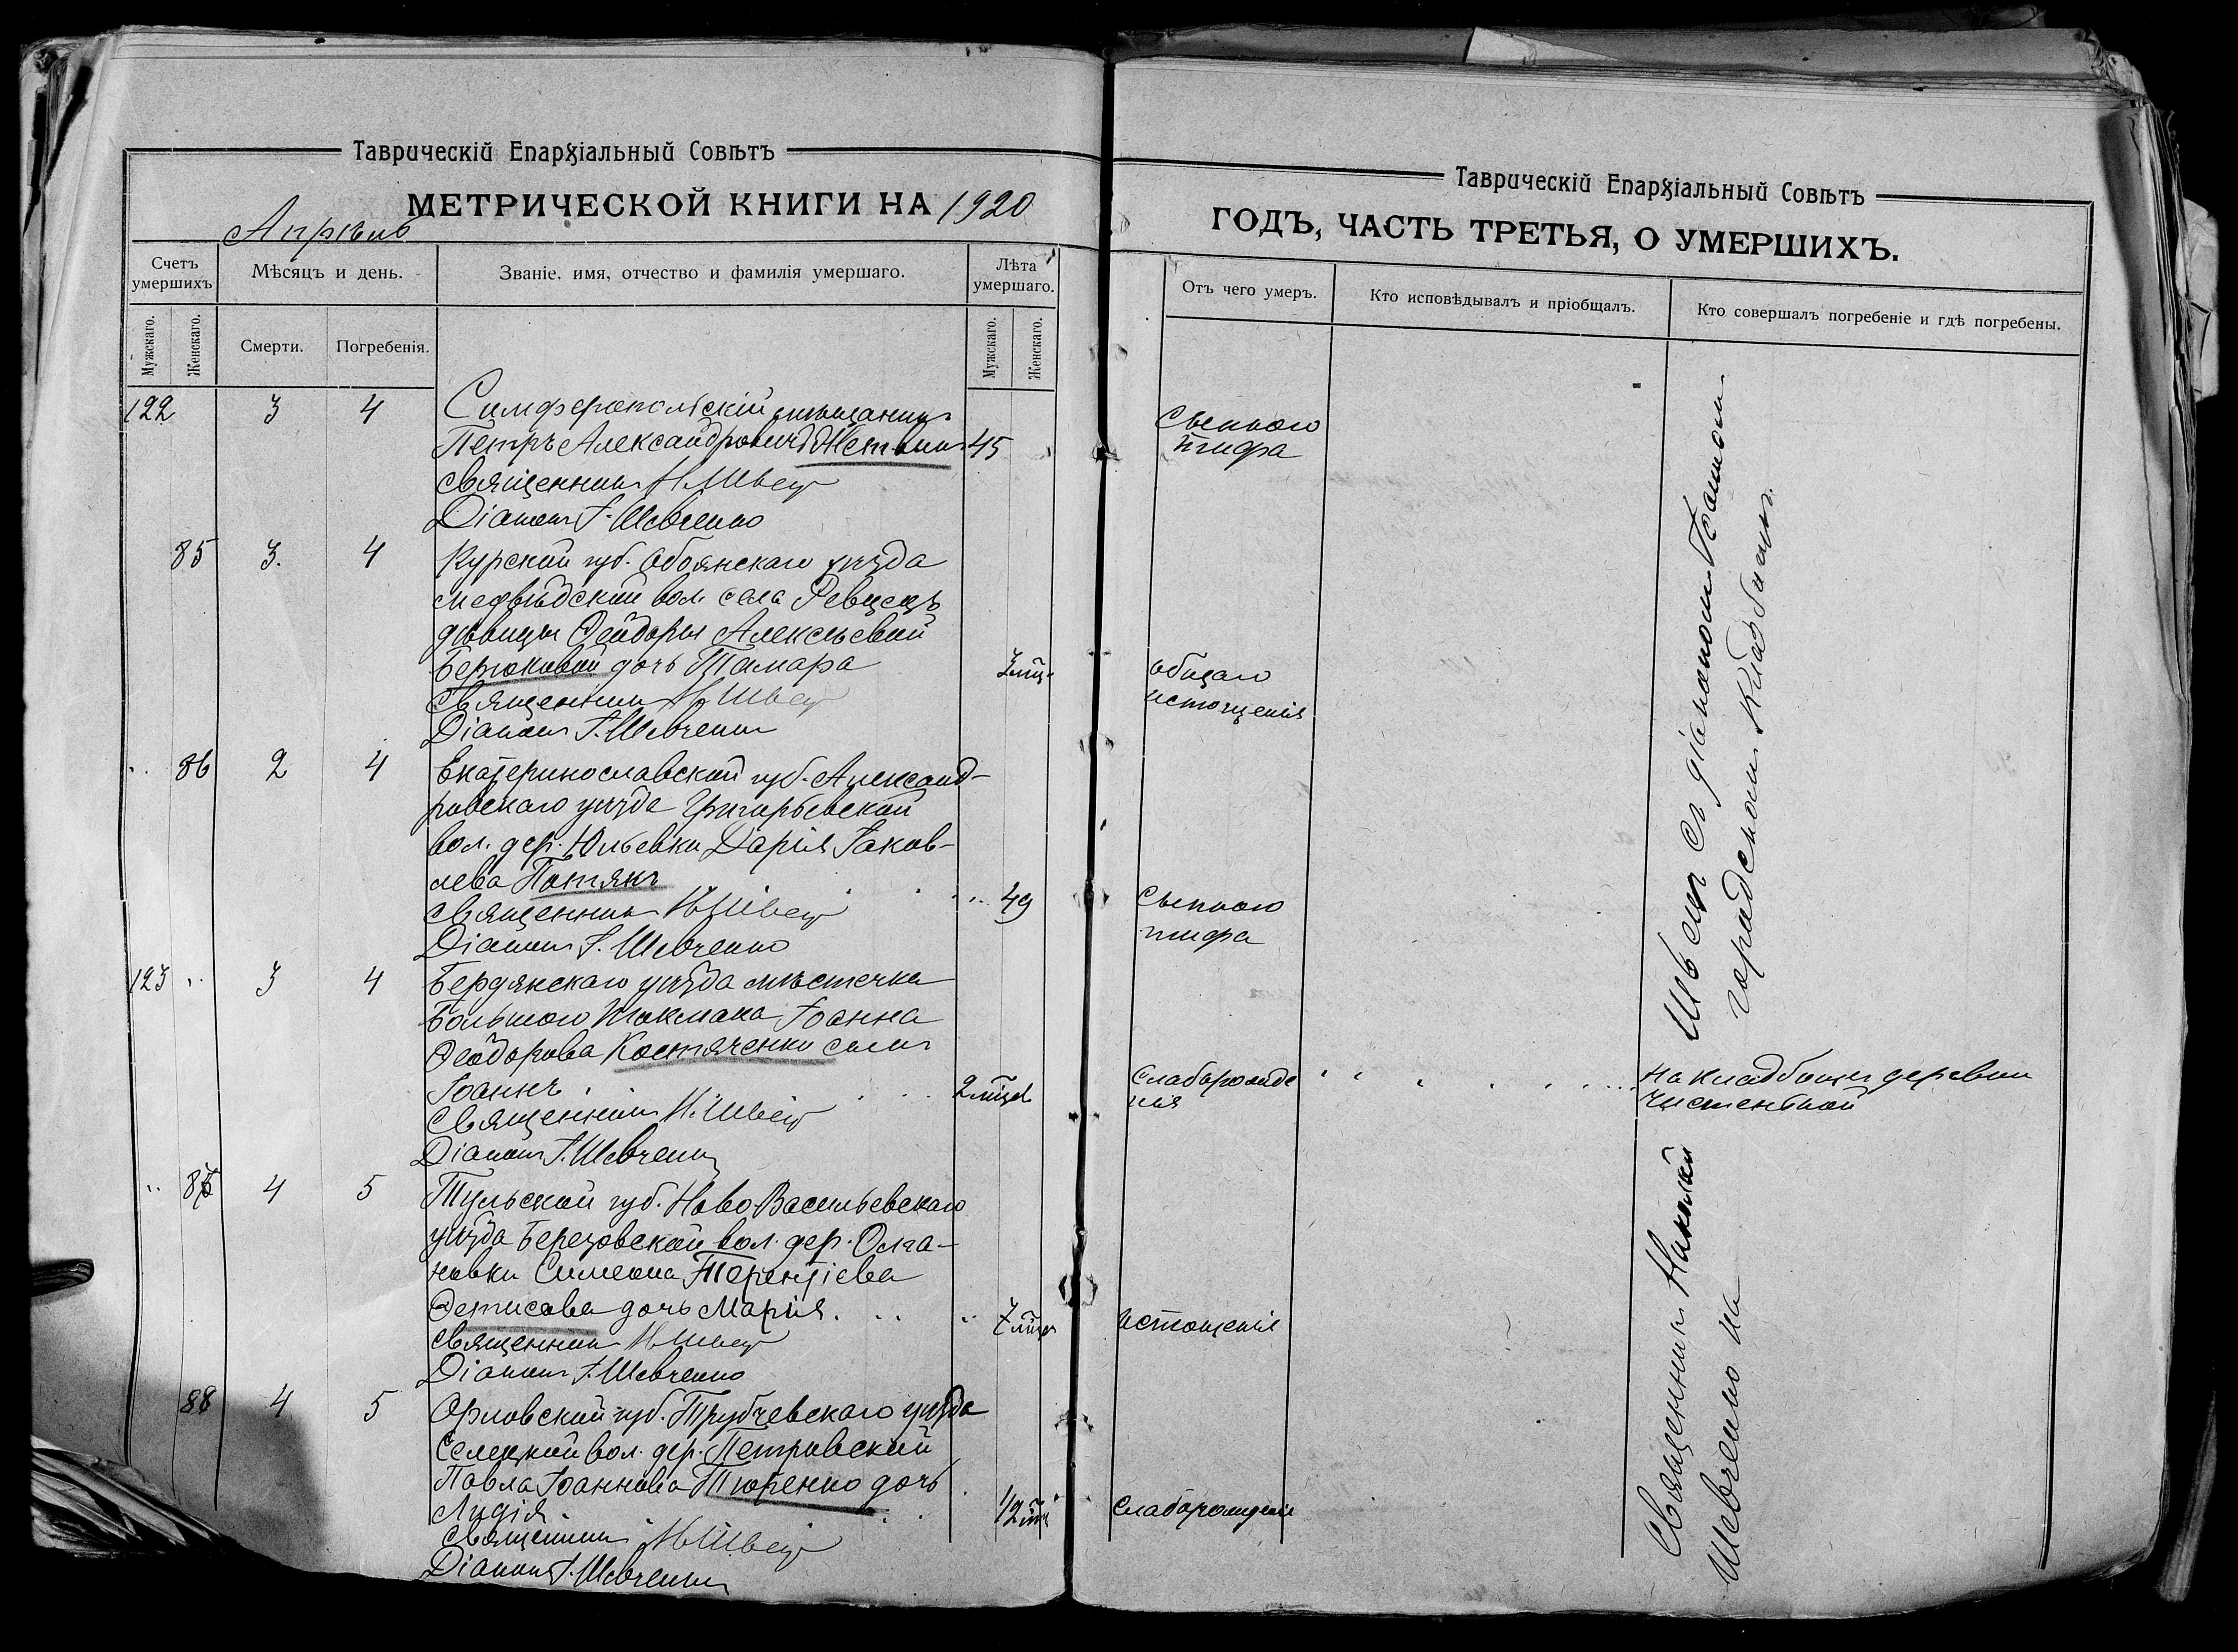 Таврическій Епархіальный Совѣтъ
МЕТРИЧЕСКОЙ КНИГИ НА 1920
Апрѣль
Счетъ умершихъ
Мѣсяцъ и день.
Званіе, имя, отчество и фамилія умершаго.
Лѣта умершаго.
Мужскаго.
Женскаго.
Смерти.
Погребенія.
Мужскаго.
Женскаго.
122 3 4 Симферопольскій мѣщанинъ
Петръ Александровичъ 45
Священникъ Н. Швецъ
Діаконъ І. Шевченко
85 3. 4 Курской губ. Обоянскаго уѣзда
Медвѣдской вол. села
дѣвицы Ѳеодоры Алексѣевой
Бертоковой дочь Тамара
Священникъ Н. Швецъ
Діаконъ І. Шевченко
86 2 4 Екатеринославской губ. Александ-
ровскаго уѣзда Григорьевской
вол. дер. Юльевки Дарія Іаков-
лева Потякъ 49
Священникъ Н. Швецъ
Діаконъ І. Шевченко
123 3 4 Бердянскаго уѣзда мѣстечка
Большого Токмака Іоанна
Ѳеодорова Костяченки сынъ
Іоаннъ 2 мѣс.
Священникъ Н. Швецъ
Діаконъ І. Шевченко
4 5 Тульской губ. Ново Васильевскаго
уѣзда Березовской вол. дер. Олга-
новки Симеона Терентіева
Ѳетисова дочь Марія 7 мѣс.
Священникъ Н. Швецъ
Діаконъ І. Шевченко
88 4 5 Орловской губ. Трубчевскаго уѣзда
Селецкой вол. дер. Петровской
Павла Іоаннова Тюренко дочь
Лидія
Священникъ Н. Швецъ
Діаконъ І. Шевченко
Таврическій Епархіальный Совѣтъ
ГОДЪ, ЧАСТЬ ТРЕТЬЯ, О УМЕРШИХЪ.
Отъ чего умеръ.
Кто исповѣдывалъ и пріобщалъ.
Кто совершалъ погребеніе и гдѣ погребены.
Сыпного
тифа
общаго
истощенія
Сыпного
тифа
Слаборожде
нія
на кладбищѣ деревни
Чистенькой
истощенія
Слаборожденія
Священникъ Николай Швецъ съ діакономъ Іоанномъ
Шевченко на городскомъ кладбищѣ.